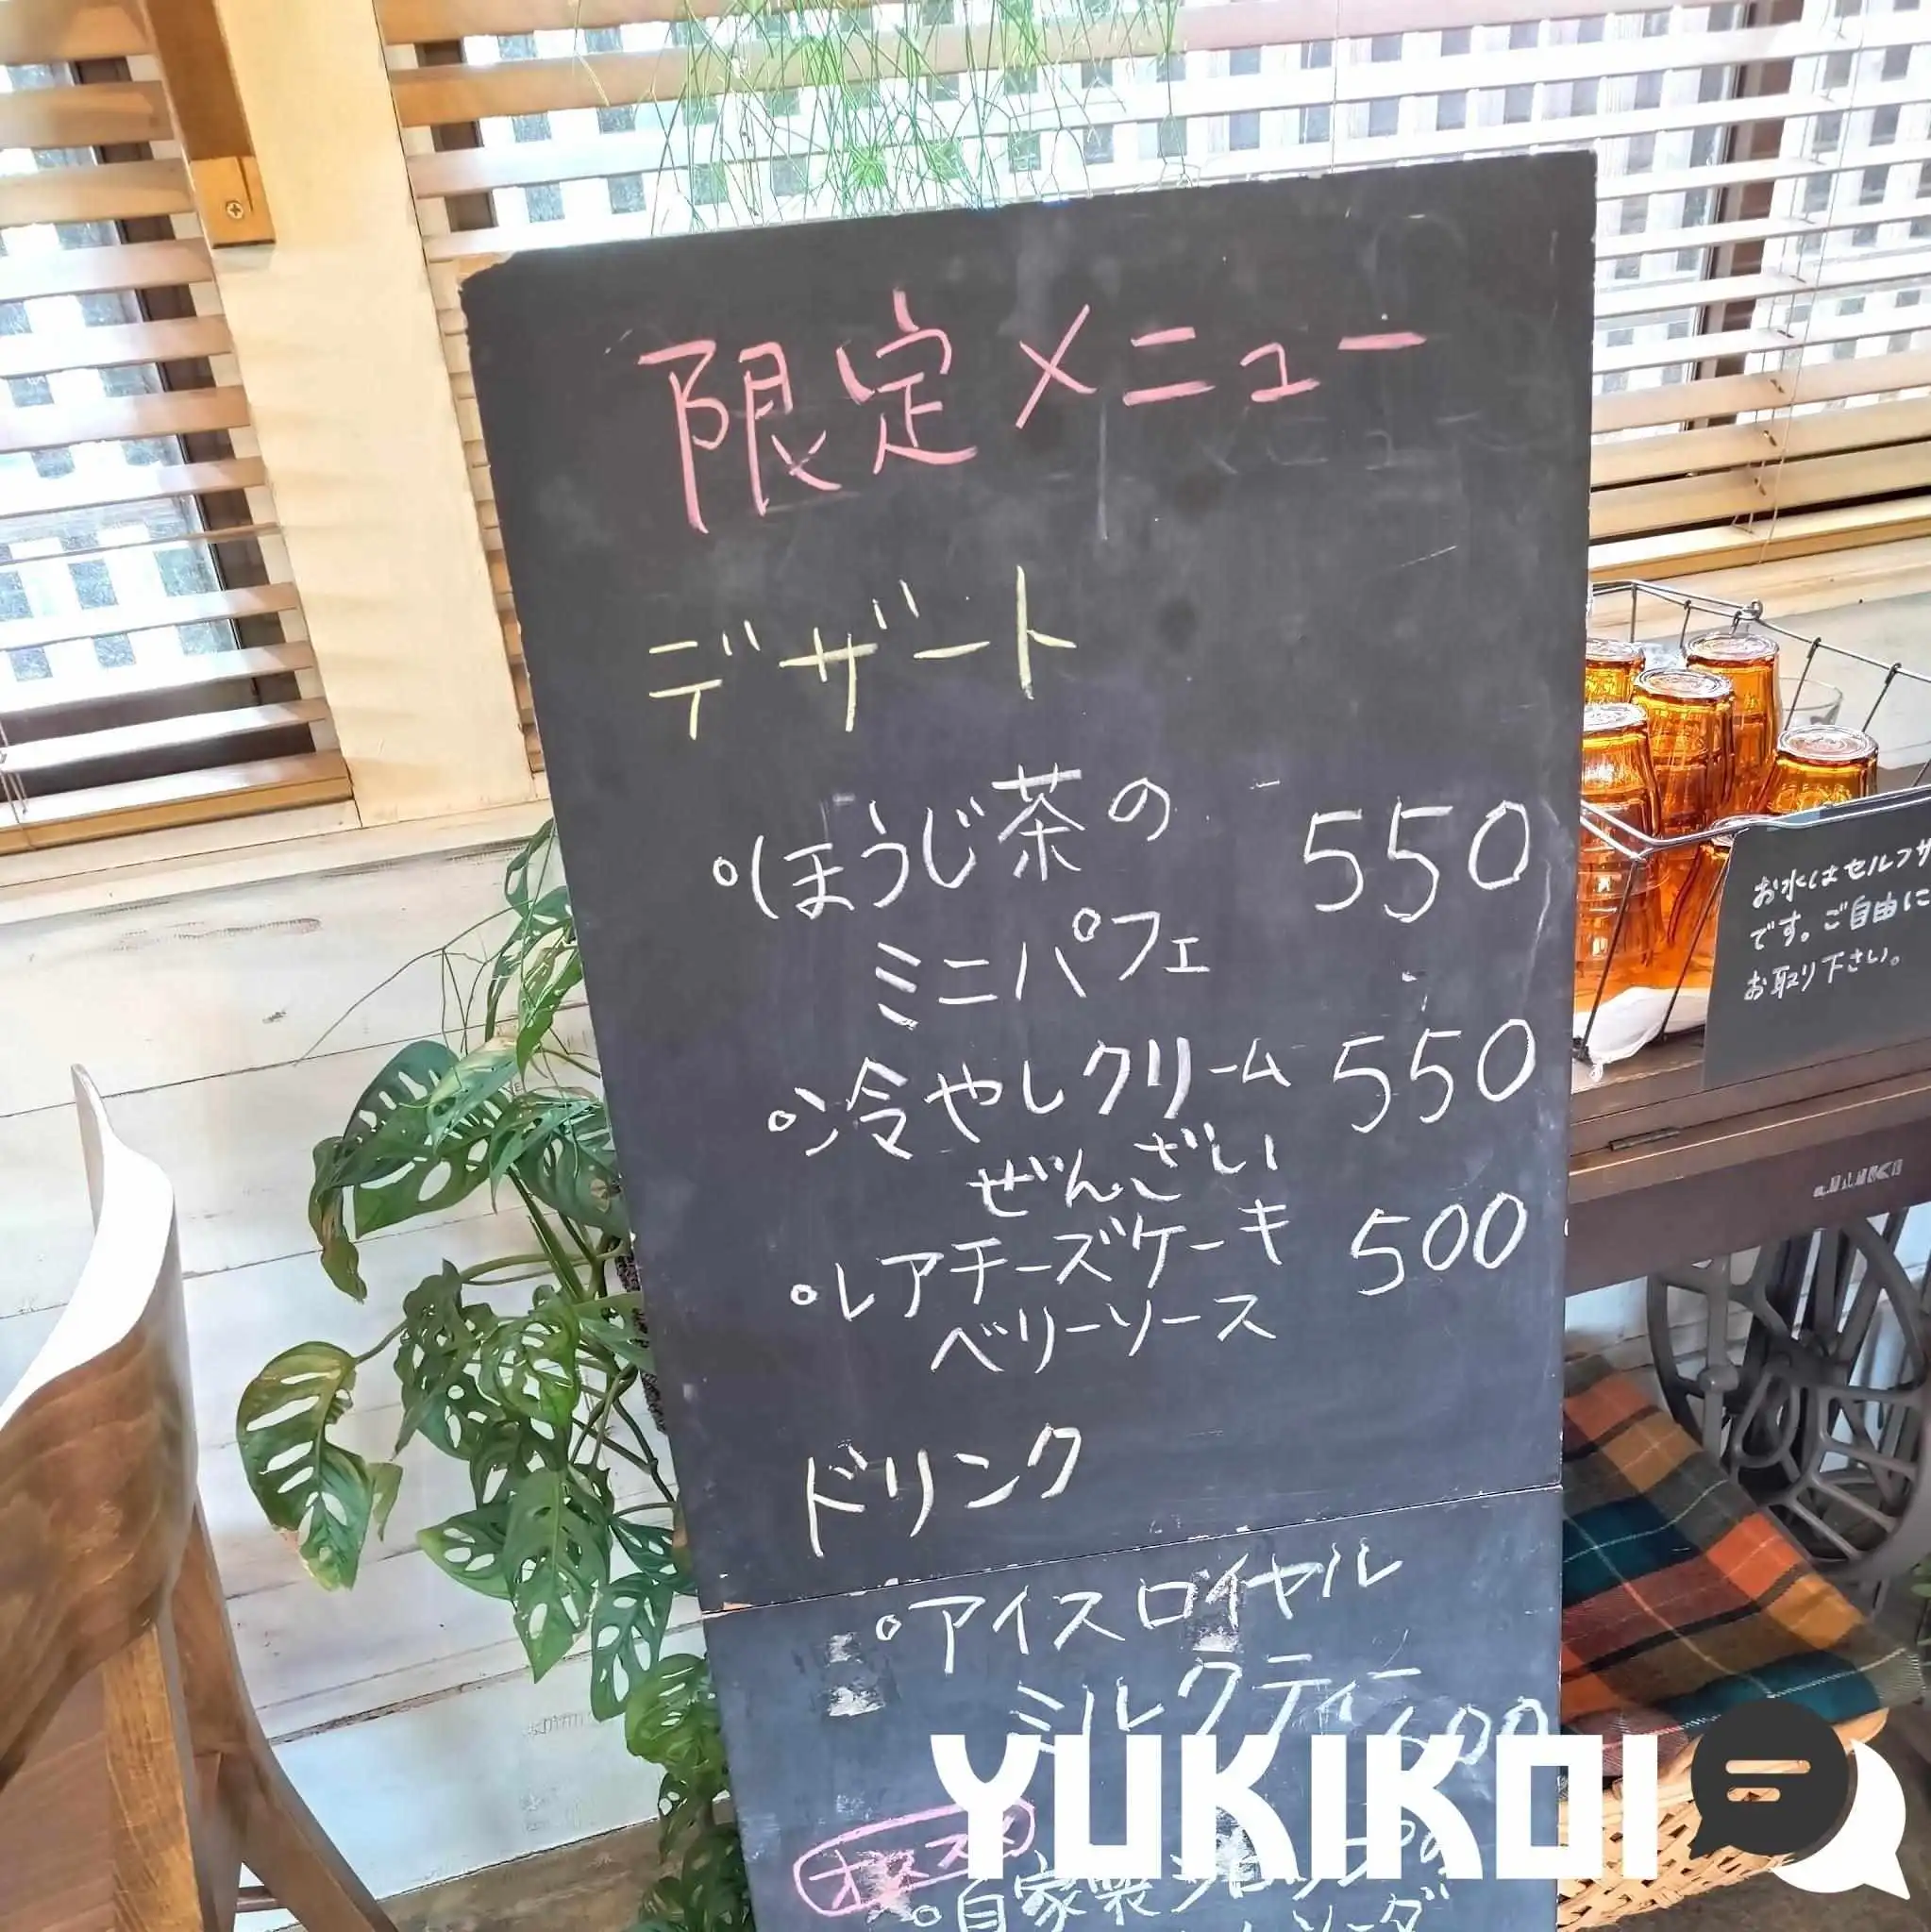 限定メニュー
デザート
ほうじ茶の 550
ミニパフェ
冷やしクリーム 550
ぜんざい
レアチーズケーキ 500
ベリーソース
ドリンク
アイスロイヤル
ミルクティー 600
自家製
ソーダ
お水はセルフサ
です。ご自由に
お取り下さい。
YUKIKOI